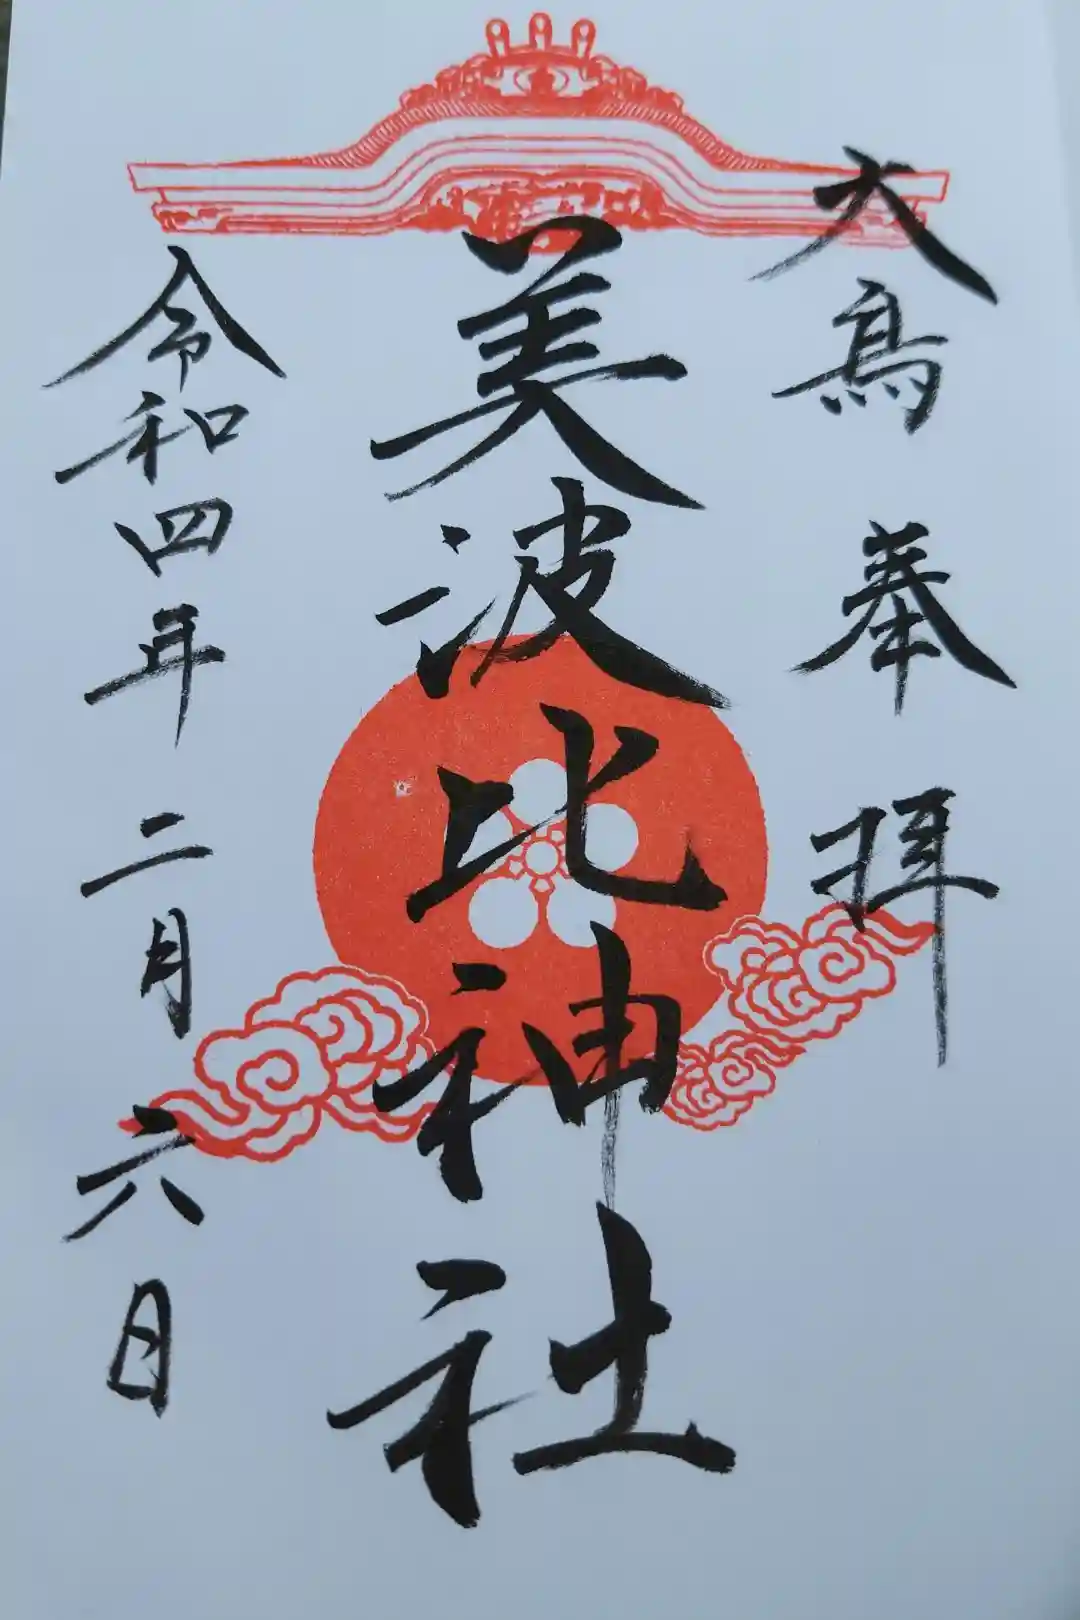 大鳥 奉拝
美波比神社
令和四年二月六日